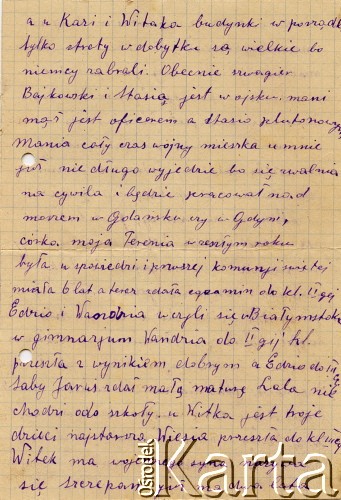 a u Kazi i Witaka budynki w porządk
tylko straty w dobytku są wielkie bo
niemcy zabrali. Obecnie szwagier
Bajkowski i Stasią jest w wojsku. mani
mąż jest oficerem a Stasio plutonowy
Mania cały czas wojny mieszka u mnie
już nie długo wyjedzie bo się zwalnia
na cywila i będzie pracował nad
morzem w Gdańsku czy w Gdyni,
córka moja Terenia w zeszłym roku
była u spowiedzi i pierwszej komunji świętej
miała 6 lat a teraz zdała egzamin do kl. II giej
Edzio i Wandzia uczyli się w Białymstoku
w gimnazjum Wandzia do II giej kl.
przeszła z wynikiem dobrym a Edzio do III
żaby Jarus zdał małą maturę Lala nie
chodzi do szkoły. u Witka jest troje
dzieci najstarsza Wiesia przeszła do kl
Witek ma
się Szczepan ma dwa lata
Ośrodek
Karta